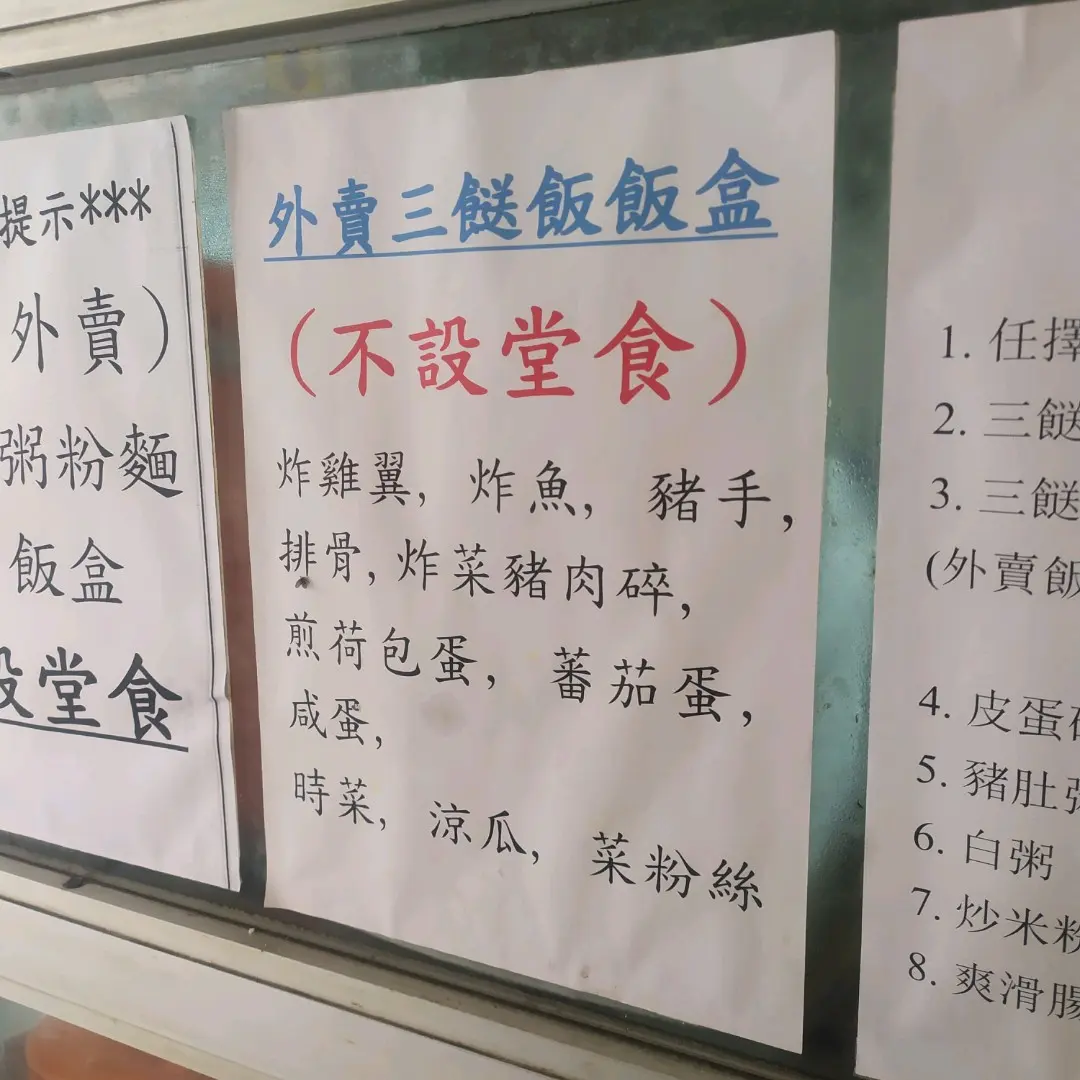 提示***
外賣）
粥粉麵
飯盒
設堂食
外賣三餸飯飯盒
（不設堂食）
炸雞翼, 炸魚, 豬手,
排骨, 炸菜豬肉碎,
煎荷包蛋, 蕃茄蛋,
咸蛋,
時菜, 涼瓜, 菜粉絲
1. 任擇
2. 三餸
3. 三餸
(外賣飯
4. 皮蛋
5. 豬肚粥
6. 白粥
7. 炒米粉
8. 爽滑腸